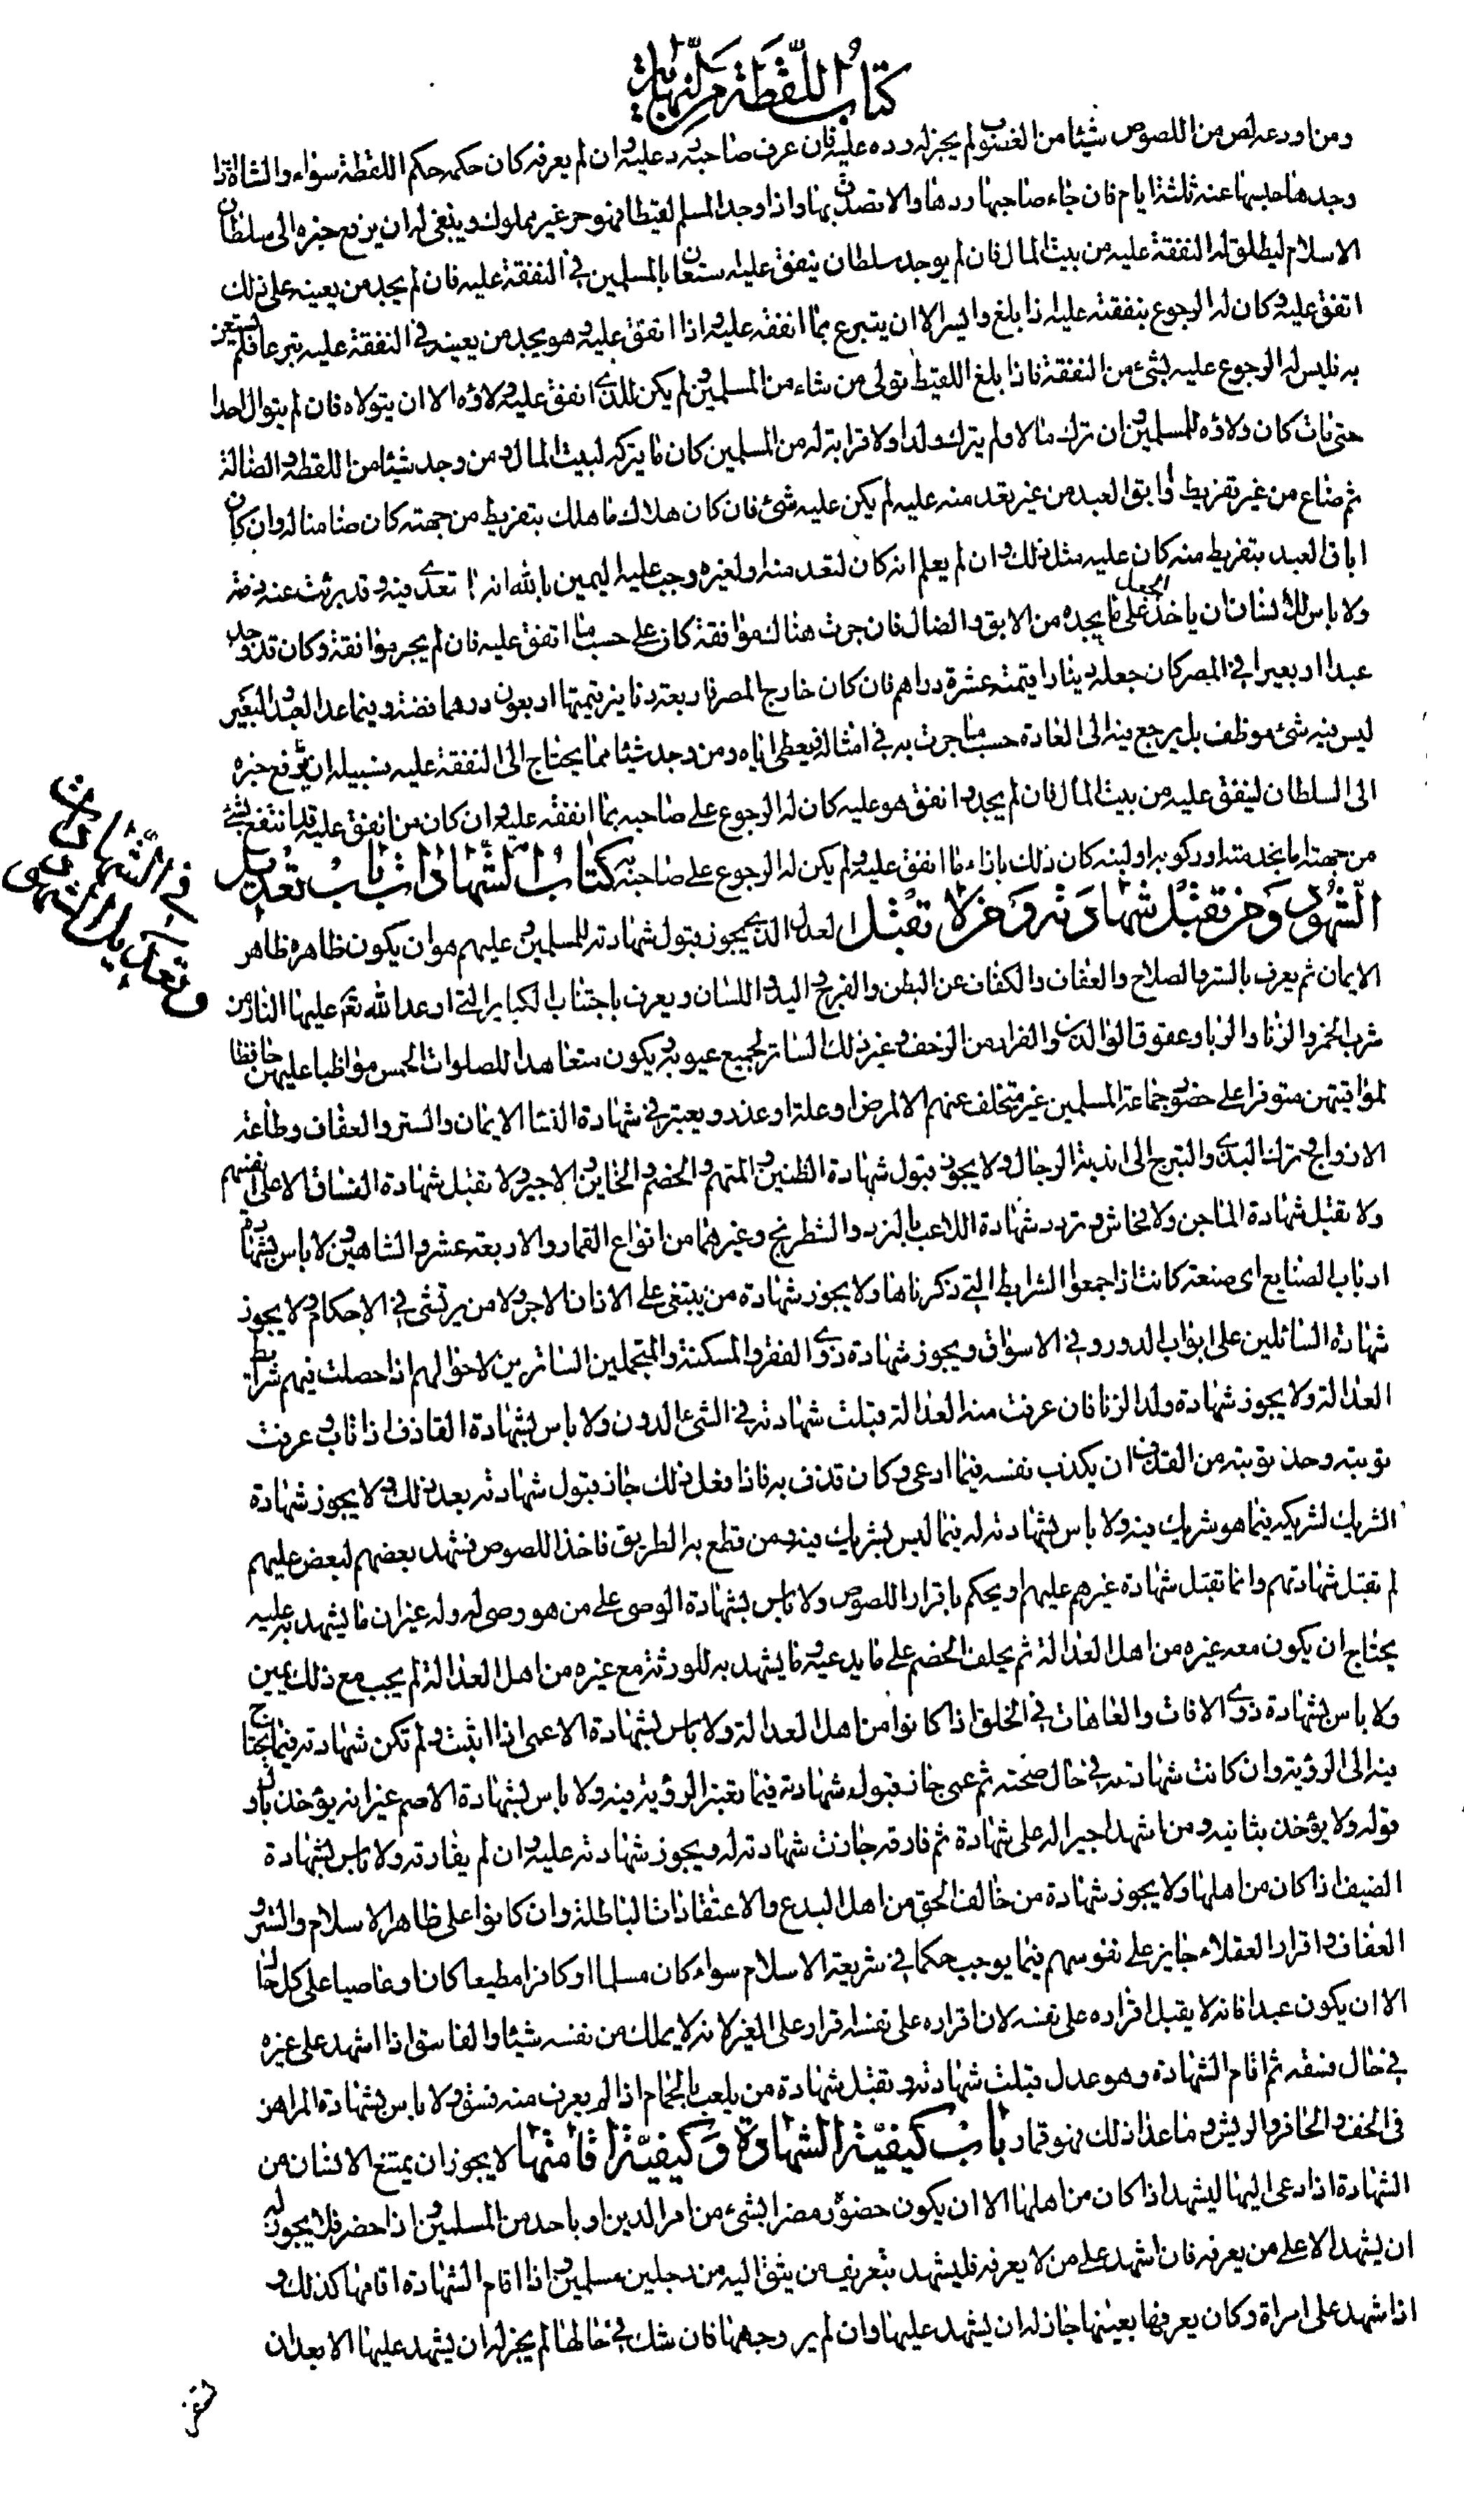 كتاب اللقطة من النهاية
ومن اودعه لص من اللصوص شيئا من الغصوب لم يجز له رده عليه فان عرف صاحبه رد عليه وان لم يعرفه كان حكمه حكم اللقطة سواء والشاة اذا
وجدها حبسها عنده ثلثة ايام فان جاء صاحبها ردها والا تصدق بها واذا وجد المسلم لقيطا فهو حر غير مملوك وينبغي له ان يرفع خبره الى سلطان
الاسلام ليطلق له النفقة عليه من بيت المال فان لم يوجد سلطان ينفق عليه استعان بالمسلمين في النفقة عليه فان لم يجد من يعينه على ذلك
انفق عليه وكان له الرجوع بنفقته عليه اذا بلغ وايسر الا ان يتبرع بما انفقه عليه واذا انفق عليه وهو يجد من يعينه في النفقة عليه تبرعا فلم يستعن
به فليس له الرجوع عليه بشئ من النفقة فاذا بلغ اللقيط تولى من شاء من المسلمين ولم يكن للذي انفق عليه ولاؤه الا ان يتولاه فان لم يتوال احدا
حتى مات كان ولاؤه للمسلمين وان ترك مالا ولم يترك ولدا ولا قرابة له من المسلمين كان ما يتركه لبيت المال ومن وجد شيئا من اللقطة والضالة
ثم ضاع من غير تفريط او ابق العبد من غير تعد منه عليه لم يكن عليه شئ فان كان هلاك ما هلك بتفريط من جهته كان ضامنا له وان كان
اباق العبد بتفريط منه كان عليه مثل ذلك وان لم يعلم انه كان لتعد منه او لغيره وجب عليه اليمين بالله انه ما تعدى فيه وقد برئت عنه ذمته
ولا باس للانسان ان ياخذ الجعل على ما يجده من الابق والضال فان جرت هناك موافقة كان على حسب ما اتفق عليه فان لم يجر موافقة وكان قد وجد
عبدا او بعيرا في المصر كان جعله دينارا قيمته عشرة دراهم فان كان خارج المصر فاربعة دنانير قيمتها اربعون درهما فضة وفيما عدا العبد والبعير
ليس فيه شئ موظف بل يرجع فيه الى العادة حسب ما جرت به في امثاله فيعطى اياه ومن وجد شيئا مما يحتاج الى النفقة عليه فسبيله ان يرفع خبره
الى السلطان لينفق عليه من بيت المال فان لم يجد وانفق هو عليه كان له الرجوع على صاحبه بما انفقه عليه وان كان من انفق عليه قد انتفع بشئ
من جهته اما بخدمته او ركوبه او لبنه كان ذلك بازاء ما انفق عليه ولم يكن له الرجوع على صاحبه كتاب الشهادات باب تعديل
الشهود ومن تقبل شهادته ومن لا تقبل لعدل الذي يجوز قبول شهادته للمسلمين وعليهم هو ان يكون ظاهره ظاهر
الايمان ثم يعرف بالستر والصلاح والعفاف والكفاف عن البطن والفرج واليد واللسان ويعرف باجتناب الكباير التي اوعد الله تعالى عليها النار من
شرب الخمر والزنا والربا وعقوق الوالدين والفرار من الزحف وغير ذلك الساتر لجميع عيوبه ويكون متعاهدا للصلوات الخمس مواظبا عليهن حافظا
لمواقيتهن متوفرا على حضور جماعة المسلمين غير متخلف عنهم الا لمرض او علة او عذر ويعتبر في شهادة النساء الايمان والستر والعفاف وطاعة
الازواج وترك البذى والتبرج الى اندية الرجال ولا يجوز قبول شهادة الظنين والمتهم والخصم والخاين والاجير ولا تقبل شهادة الفساق الا على انفسهم
ولا تقبل شهادة الماجن ولا فحاش وترد شهادة اللاعب بالنرد والشطرنج وغيرهما من انواع القمار والاربعة عشر والشاهين ولا باس بشهادة
ارباب الصنايع اي صنعة كانت اذا جمعوا الشرايط التي ذكرناها ولا يجوز شهادة من يبتغي على الاذان الاجر ولا من يرتشي في الاحكام ولا يجوز
شهادة السائلين على ابواب الدور وفي الاسواق ويجوز شهادة ذوي الفقر والمسكنة والمتجملين الساترين لاحوالهم اذا حصلت فيهم شرائط
العدالة ولا يجوز شهادة ولد الزنا فان عرفت منه العدالة قبلت شهادته في الشئ الدون ولا باس بشهادة القاذف اذا تاب وعرفت
توبته وحد توبته من القذف ان يكذب نفسه فيما ادعى وكان قذف به فاذا فعل ذلك جاز قبول شهادته بعد ذلك ولا يجوز شهادة
الشريك لشريكه فيما هو شريك فيه ولا باس بشهادته له فيما ليس بشريك فيه ومن قطع به الطريق فاخذ اللصوص فشهد بعضهم لبعض عليهم
لم تقبل شهادتهم وانما تقبل شهادة غيرهم عليهم او يحكم باقرار اللصوص ولا باس بشهادة الوصي على من هو وصى له وله غير ان ما يشهد به عليه
يحتاج ان يكون معه غيره من اهل العدالة ثم يحلف الخصم على ما يدعيه وما يشهد به للورثة مع غيره من اهل العدالة لم يجب مع ذلك يمين
ولا باس بشهادة ذوي الافات والعاهات في الخلق اذا كانوا من اهل العدالة ولا باس بشهادة الاعمى اذا اثبت ولم تكن شهادته فيما يحتاج
فيه الى الرؤية وان كانت شهادته في حال صحته ثم عمي جاز قبول شهادته فيما تعتبر الرؤية فيه ولا باس بشهادة الاصم غير انه يؤخذ باول
قوله ولا يؤخذ بثانيه ومن اشهد اجيرا له على شهادة ثم فارقه جازت شهادته له ويجوز شهادته عليه وان لم يفارقه ولا باس بشهادة
الضيف اذا كان من اهلها ولا يجوز شهادة من خالف الحق من اهل البدع والاعتقادات الباطلة وان كانوا على ظاهر الاسلام والستر و
العفاف واقرار العقلاء جايز على نفوسهم فيما يوجب حكما في شريعة الاسلام سواء كان مسلما او كافرا مطيعا كان او عاصيا على كل حال
الا ان يكون عبدا فانه لا يقبل اقراره على نفسه لان اقراره على نفسه اقرار على الغير لانه لا يملك من نفسه شيئا والفاسق اذا اشهد على غيره
في حال فسقه ثم اقام الشهادة وهو عدل قبلت شهادته وتقبل شهادة من يلعب بالحمام اذا لم يعرف منه فسق ولا باس بشهادة المراهن
في الخف والحافر والريش وما عدا ذلك فهو قمار باب كيفية الشهادة وكيفية اقامتها لا يجوز ان يمتنع الانسان من
الشهادة اذا دعى اليها ليشهد اذا كان من اهلها الا ان يكون حضوره مضرا بشئ من امر الدين او باحد من المسلمين واذا حضر فلا يجوز له
ان يشهد الا على من يعرفه فان اشهد على من لا يعرفه فليشهد بتعريف من يثق اليه من رجلين مسلمين واذا اقام الشهادة اقامها كذلك و
اذا شهد على امراة وكان يعرفها بعينها جاز له ان يشهد عليها وان لم ير وجهها فان شك في حالها لم يجز له ان يشهد عليها الا بعد ان
في الشهادات
وتعديل الشهود